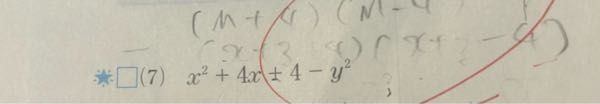 (M + 4) (M - 4
(x + 3 + 4) (x + 3 - 4)
(7) x² + 4x ± 4 - y²